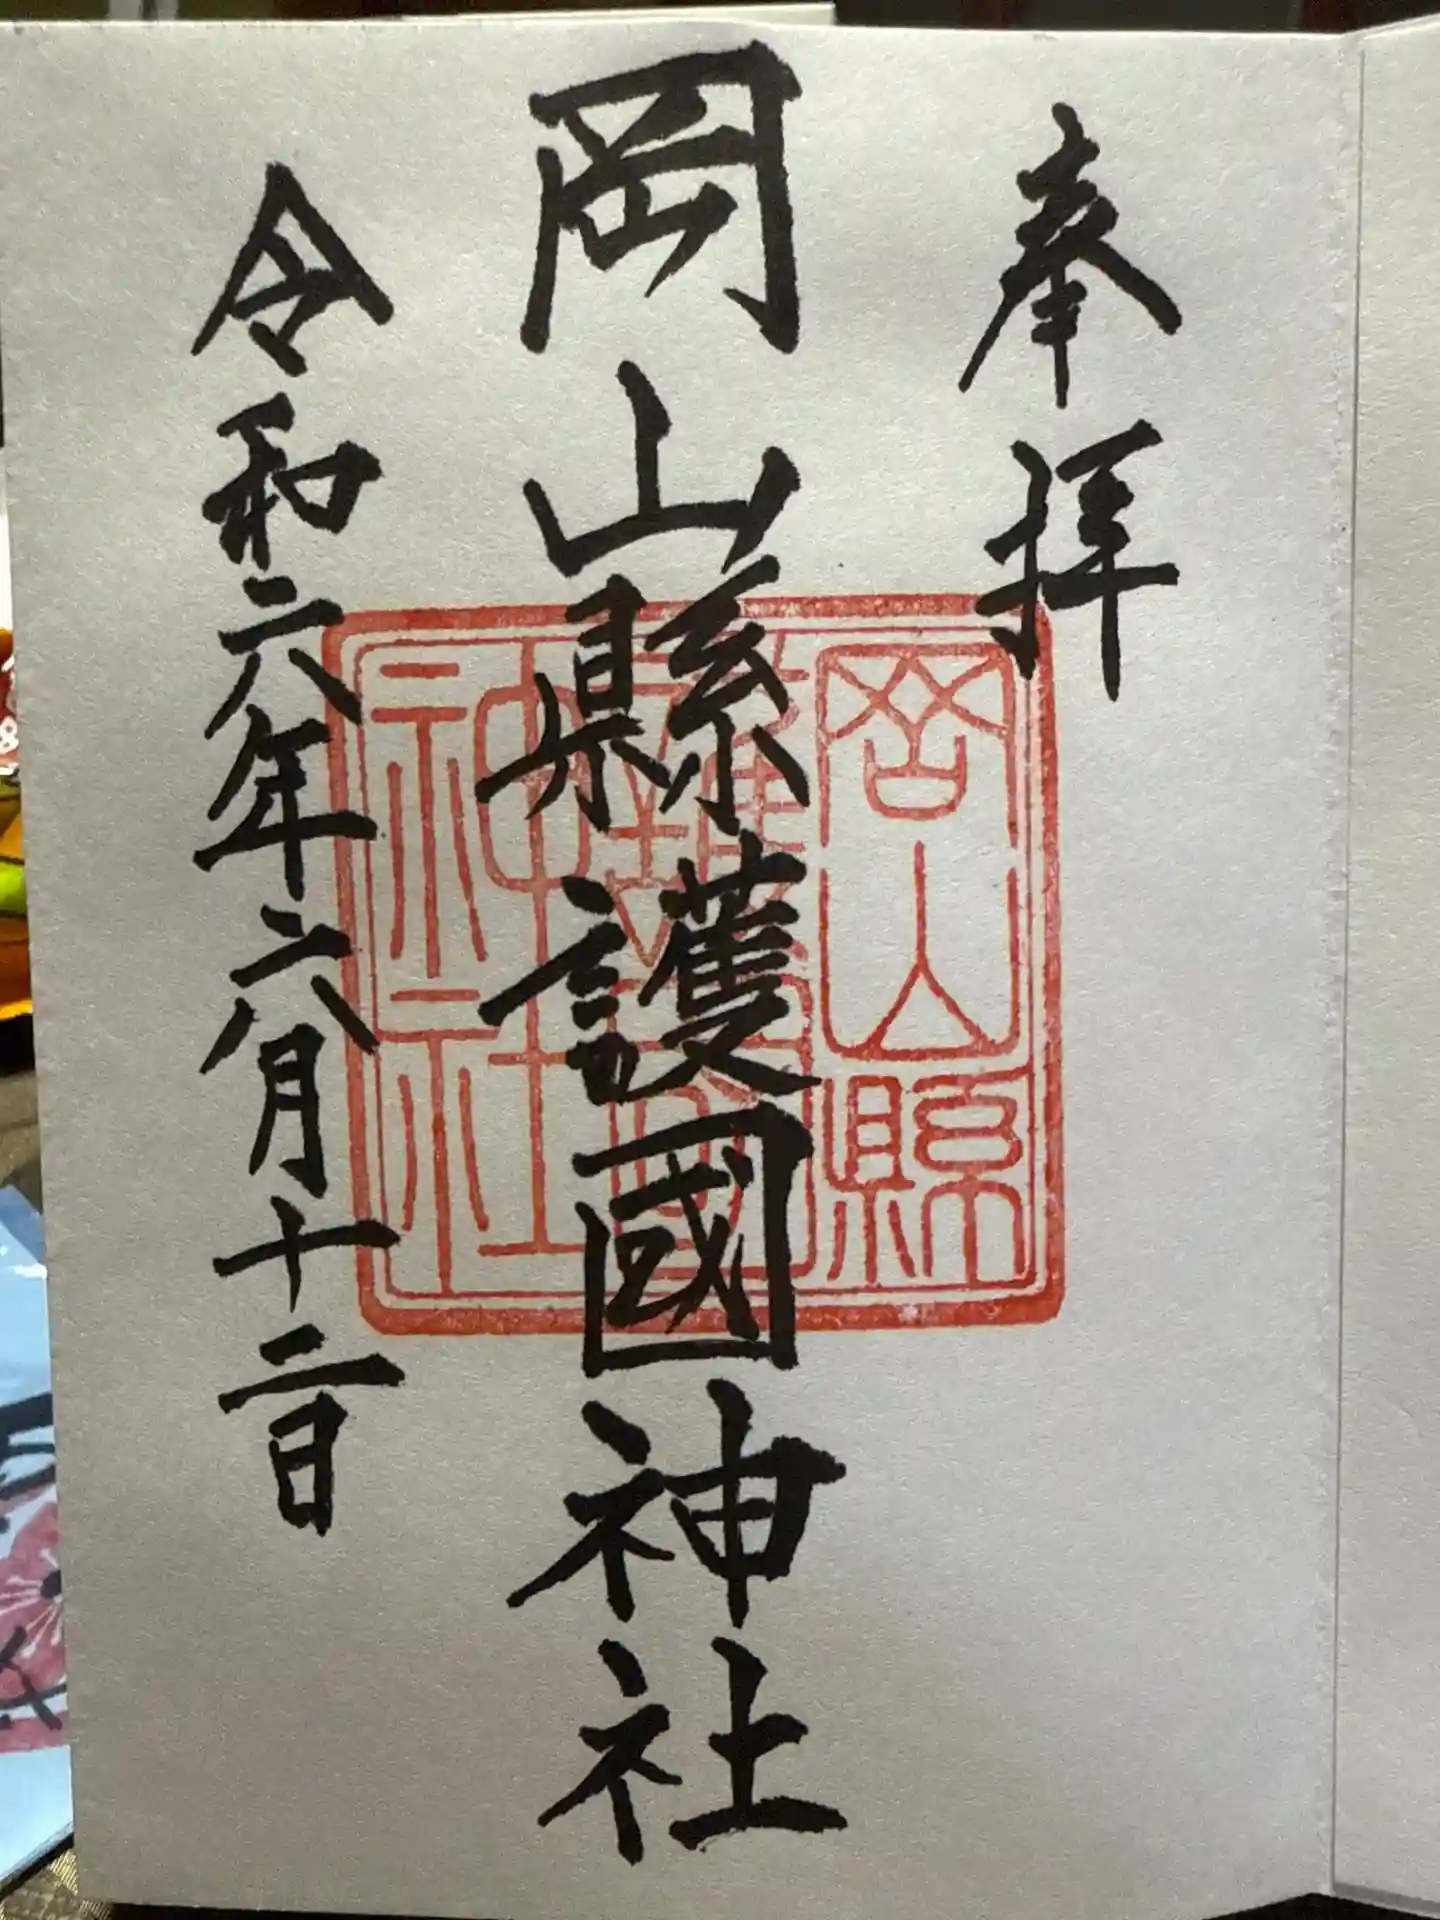 奉拝
岡山縣護國神社
令和六年六月十二日
岡山縣
護國
神社